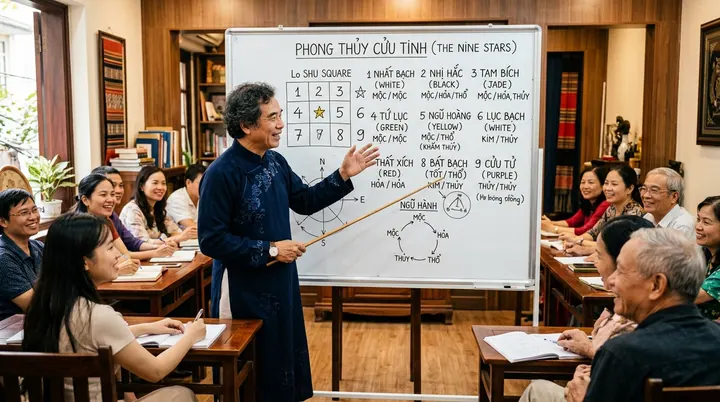 PHONG THỦY CỬU TINH (THE NINE STARS)
LO SHU SQUARE
1 2 3
4 5 6
7 7 8 9
1 NHẤT BẠCH
(WHITE)
MỘC / MỘC
2 NHỊ HẮC
(BLACK)
MỘC / HỎA / THỔ
3 TAM BÍCH
(JADE)
MỘC / HỎA, THỦY
4 TỨ LỤC
(GREEN)
MỘC / MỘC
5 NGŨ HOÀNG
(YELLOW)
MỘC / THỔ
(KHÂM THỦY)
6 LỤC BẠCH
(WHITE)
KIM / THỦY
THẤT XÍCH
(RED)
HỎA / HỎA
8 BÁT BẠCH
(TỐT / THỔ)
KIM / THỦY
9 CỬU TỬ
(PURPLE)
THỦY / THỦY
N
E
S
NGŨ HÀNH
MỘC
MỘC
HỎA
THỦY
THỔ